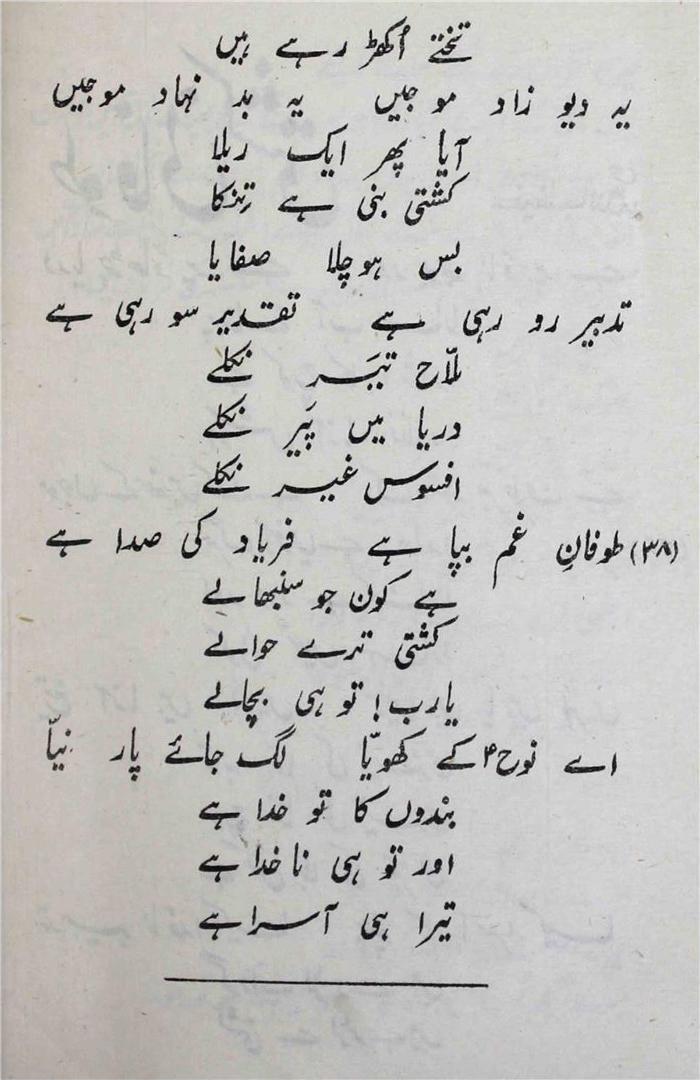 تختے اُکھڑ رہے ہیں
یہ دیو زاد موجیں یہ بد نہاد موجیں
آیا پھر ایک ریلا
کشتی بنی ہے تِنکا
بس ہوچلا صفایا
تدبیر رو رہی ہے تقدیر سو رہی ہے
ملّاح تَیر نکلے
دریا میں پَیر نکلے
افسوس غیر نکلے
(۳۸) طوفانِ غم بپا ہے فریاد کی صدا ہے
ہے کون جو سنبھالے
کشتی ترے حوالے
یارب! تو ہی بچالے
اے نوح۴ کے کھویّا لگ جائے پار نیّا
بندوں کا تو خدا ہے
اور تو ہی ناخدا ہے
تیرا ہی آسرا ہے